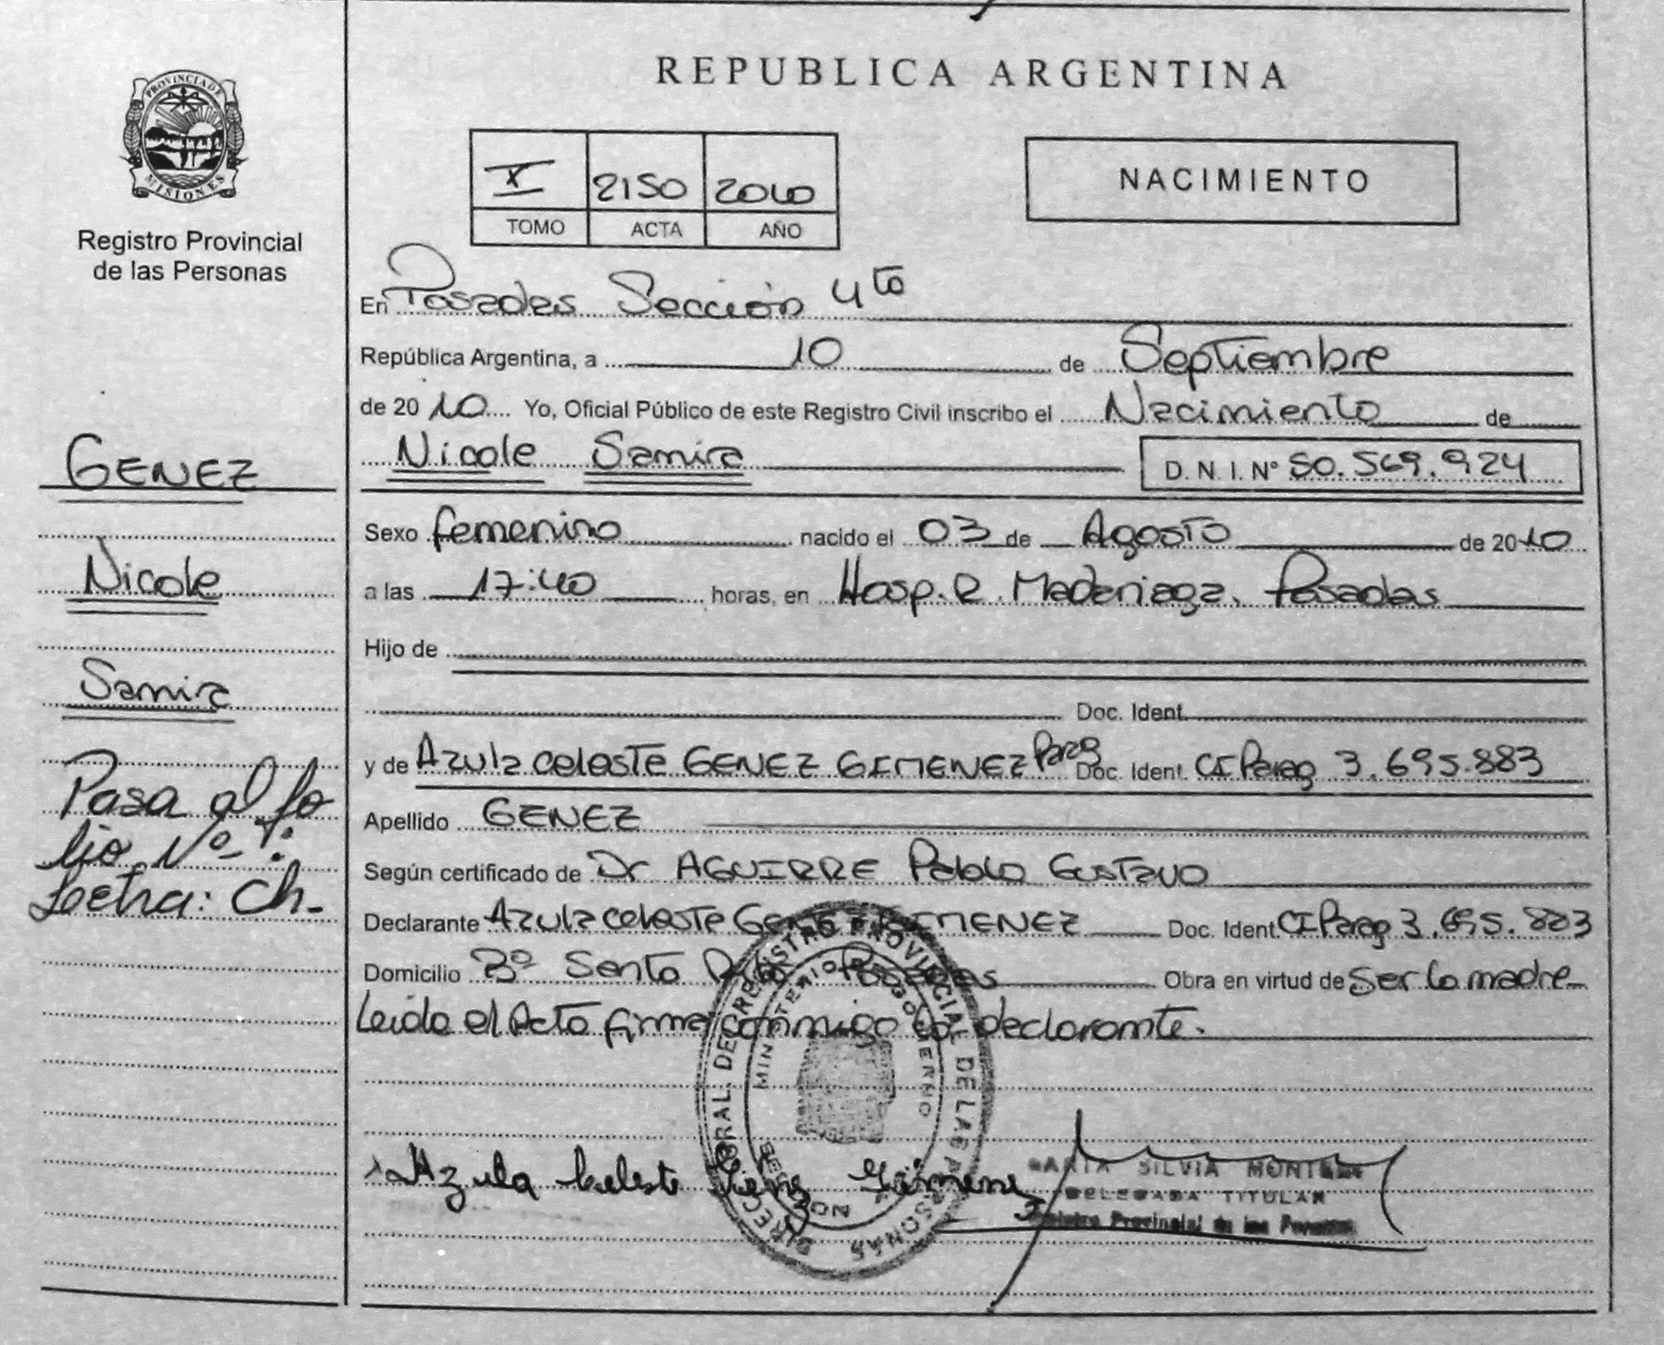 PROVINCIA DE
MISIONES
Registro Provincial
de las Personas
GENEZ
Nicole
Samira
Pasa al fo
lio Nº 1:
Letra: Ch.
REPUBLICA ARGENTINA
X 2150 2010
TOMO ACTA AÑO
NACIMIENTO
En Posadas Sección 4to
República Argentina, a 10 de Septiembre
de 20 10 Yo, Oficial Público de este Registro Civil inscribo el Nacimiento de
Nicole Samira D. N. I. Nº 50.569.924
Sexo femenino nacido el 03 de Agosto de 2010
a las 17:40 horas, en Hosp. R. Madariaga. Posadas
Hijo de
Doc. Ident.
y de Azula Celeste GENEZ GIMENEZ Parag Doc. Ident. CI Parag 3.695.883
Apellido GENEZ
Según certificado de Dr AGUIRRE Pablo Gustavo
Declarante Azula Celeste GENEZ GIMENEZ Doc. Ident. CI Parag 3.695.883
Domicilio Bº Santa Rita Posadas Obra en virtud de Ser la madre
Leída el Acta firma conmigo la declarante.
DIRECCION GENERAL DEL REGISTRO PROVINCIAL DE LAS PERSONAS
MINISTERIO DE GOBIERNO
MISIONES
Azula Celeste Genez Gimenez
MARIA SILVIA
DELEGADA TITULAR
Registro Provincial de las Personas